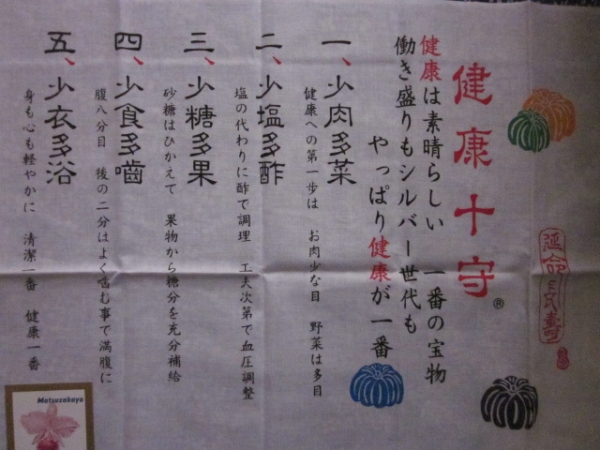 延命長寿
健康十守®
健康は素晴らしい 一番の宝物
働き盛りもシルバー世代も
やっぱり健康が一番
一、少肉多菜
健康への第一歩は お肉少な目 野菜は多目
二、少塩多酢
塩の代わりに酢で調理 工夫次第で血圧調整
三、少糖多果
砂糖はひかえて 果物から糖分を充分補給
四、少食多噛
腹八分目 後の二分はよく噛む事で満腹に
五、少衣多浴
身も心も軽やかに 清潔一番 健康一番
Matsuzakaya